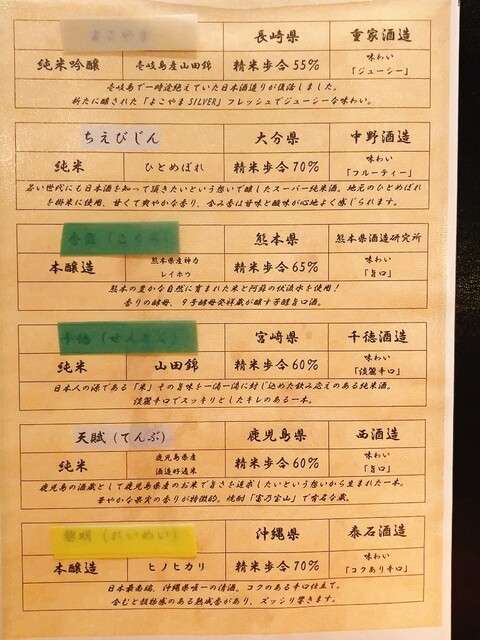 よこやま 長崎県 重家酒造
純米吟醸 壱岐島産山田錦 精米歩合55% 味わい「ジューシー」
壱岐島で一時途絶えていた日本酒造りが復活しました。
新たに醸された「よこやまSILVER」フレッシュでジューシーな味わい。
ちえびじん 大分県 中野酒造
純米 ひとめぼれ 精米歩合70% 味わい「フルーティー」
若い世代にも日本酒を知って頂きたいという想いで醸したスーパー純米酒。地元のひとめぼれ
を掛米に使用、甘くて爽やかな香り、含み香は甘味と酸味が心地よく感じられます。
香露(こうろ) 熊本県 熊本県酒造研究所
本醸造 熊本県産神力 レイホウ 精米歩合65% 味わい「旨口」
熊本の豊かな自然に育まれた米と阿蘇の伏流水を使用!
香りの酵母、9号酵母発祥蔵が醸す芳醇旨口酒。
千徳(せんとく) 宮崎県 千徳酒造
純米 山田錦 精米歩合60% 味わい「淡麗辛口」
日本人の源である「米」その旨味を一滴一滴に封じ込めた飲み応えのある純米酒。
淡麗辛口でスッキリとしたキレのある一本。
天賦(てんぶ) 鹿児島県 西酒造
純米 鹿児島県産 酒造好適米 精米歩合60% 味わい「旨口」
鹿児島の酒蔵として鹿児島県産のお米で旨さを追求したいという想いから生まれた一本。
華やかな果実の香りが特徴的。焼酎「富乃宝山」で有名な蔵。
黎明(れいめい) 沖縄県 泰石酒造
本醸造 ヒノヒカリ 精米歩合70% 味わい「コクあり辛口」
日本最南端、沖縄県唯一の清酒。コクのある辛口仕立て。
含むと穀物感のある熟成香があり、ズッシリ響きます。